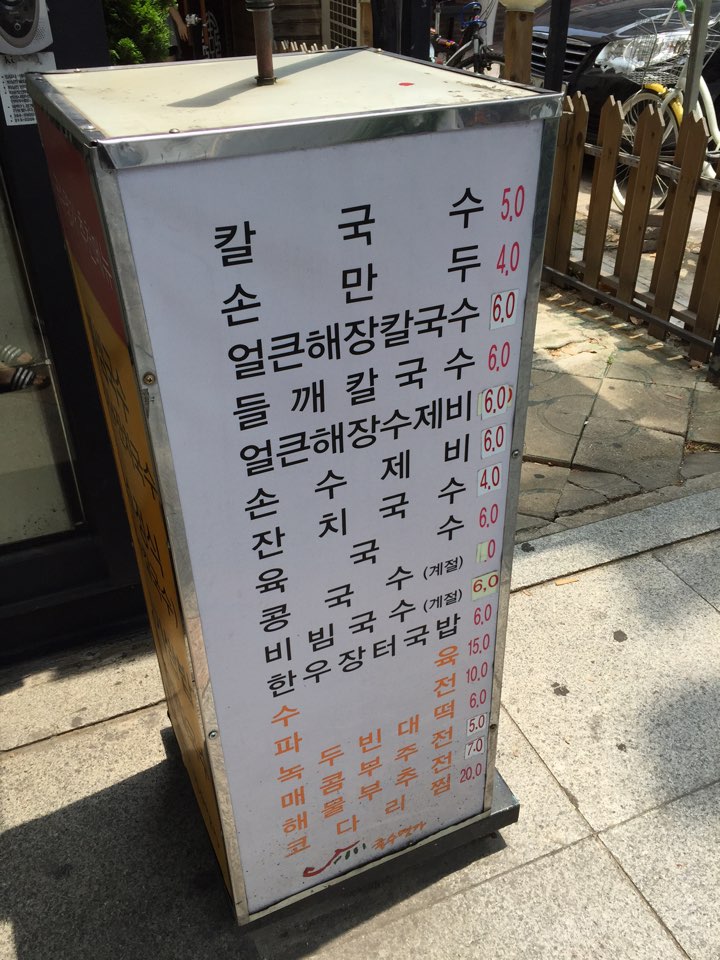 칼국수 5.0
손만두 4.0
얼큰해장칼국수 6.0
들깨칼국수 6.0
얼큰해장수제비 6.0
손수제비 6.0
잔치국수 4.0
육국수 6.0
콩국수(계절) .0
비빔국수(계절) 6.0
한우장터국밥 6.0
수육 15.0
파전 10.0
녹두빈대떡 6.0
매콤부추전 5.0
해물부추전 7.0
코다리찜 20.0
국수명가